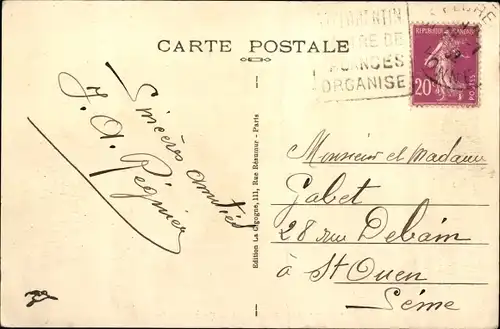 CARTE POSTALE
CENTRE DE
VACANCES
ORGANISE
REPUBLIQUE FRANCAISE
20c
POSTES
Sincères amitiés
J. A. Régnier
Edition La Cigogne, 111, Rue Réaumur - Paris
Monsieur et Madame
Gabet
28 rue Debain
à St Ouen
Seine